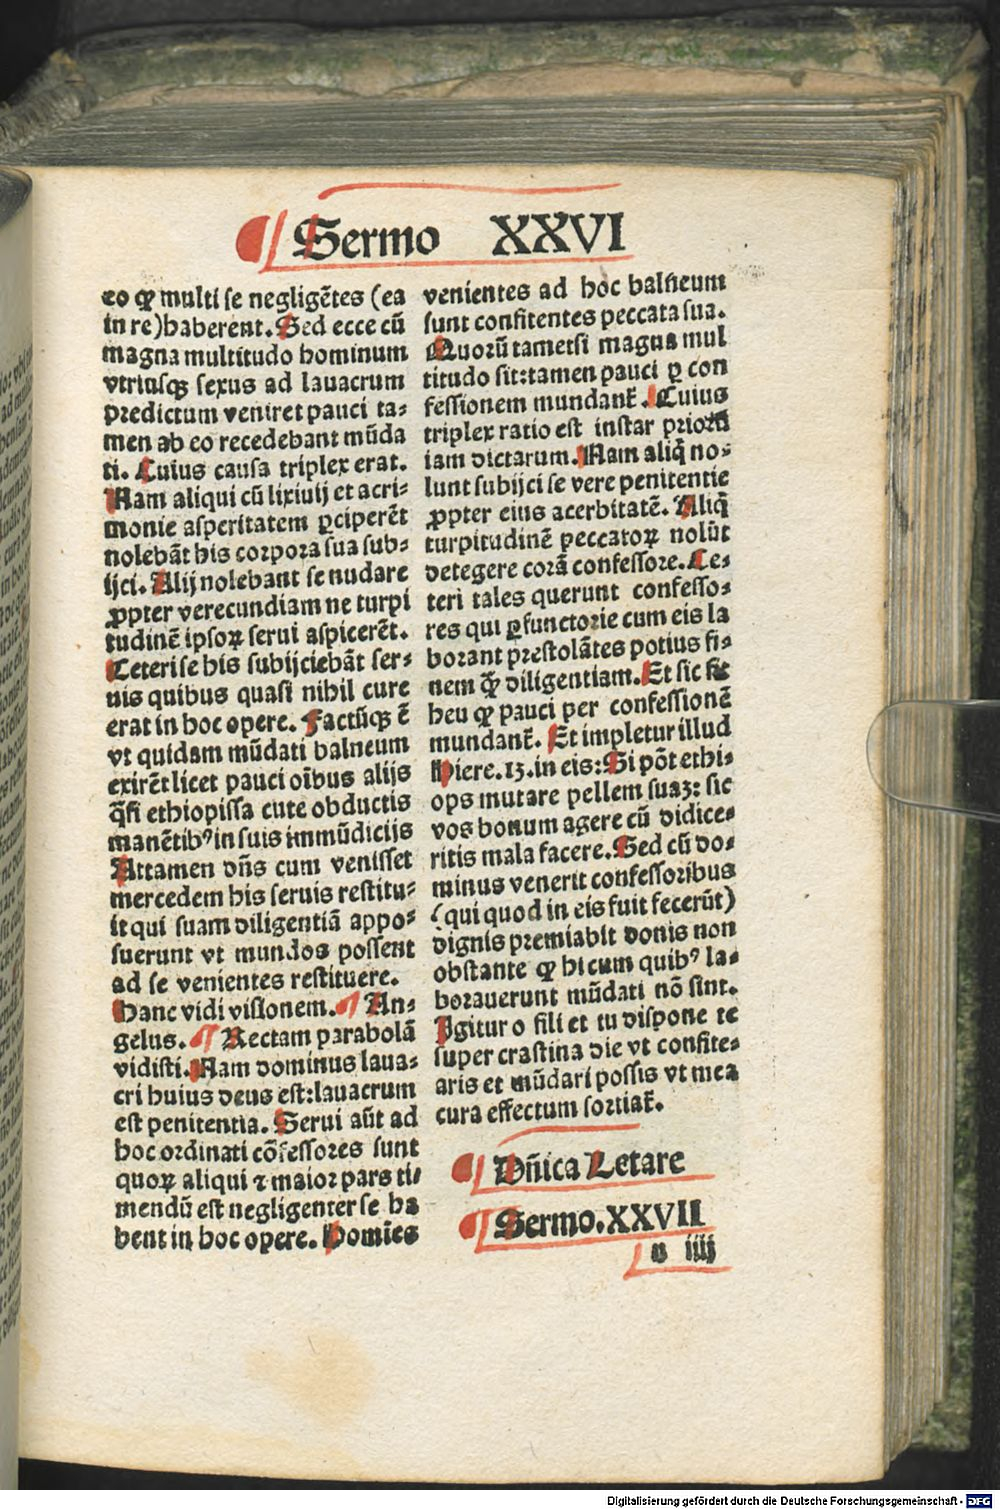 Sermo XXVI
eo qꝫ multi se negligẽtes (ea
in re) haberent. Sed ecce cũ
magna multitudo hominum
vtriusqꝫ sexus ad lauacrum
predictum veniret pauci ta⸗
men ab eo recedebant mũda
ti. Cuius causa triplex erat.
Nam aliqui cũ lixiuij et acri⸗
monie asperitatem ꝑciperẽt
nolebãt his corpora sua sub⸗
ijci. Alij nolebant se nudare
ꝓpter verecundiam ne turpi
tudinẽ ipsoꝝ serui aspicerẽt.
Ceteri se his subijciebãt ser⸗
uis quibus quasi nihil cure
erat in hoc opere. Factũqꝫ ẽ
vt quidam mũdati balneum
exirẽt licet pauci oĩbus alijs
q̃si ethiopissa cute obductis
manẽtibꝰ in suis immũdicijs
Attamen dñs cum venisset
mercedem his seruis restitu⸗
it qui suam diligentiã appo⸗
suerunt vt mundos possent
ad se venientes restituere.
Hanc vidi visionem. ¶ An⸗
gelus. ¶ Rectam parabolã
vidisti. Nam dominus laua⸗
cri huius deus est: lauacrum
est penitentia. Serui aũt ad
hoc ordinati cõfessores sunt
quoꝝ aliqui ⁊ maior pars ti⸗
mendũ est negligenter se ha
bent in hoc opere. Homies
venientes ad hoc balneum
sunt confitentes peccata sua.
Quorũ tametsi magna mul
titudo sit: tamen pauci ꝑ con
fessionem mundant᷑. Cuius
triplex ratio est instar priorũ
iam dictarum. Nam aliq̃ no⸗
lunt subijci se vere penitentie
ꝓpter eius acerbitatẽ. Aliq̃
turpitudinẽ peccatoꝝ nolũt
detegere corã confessore. Ce⸗
teri tales querunt confesso⸗
res qui ꝑfunctorie cum eis la
borant prestolãtes potius fi⸗
nem q̃ꝫ diligentiam. Et sic fit
heu qꝫ pauci per confessionẽ
mundant᷑. Et impletur illud
Hiere. 13. in eis: Si põt ethi⸗
ops mutare pellem suaꝫ: sic
vos bonum agere cũ didice⸗
ritis mala facere. Sed cũ do⸗
minus venerit confessoribus
(qui quod in eis fuit fecerũt)
dignis premiabit donis non
obstante qꝫ hi cum quibꝰ la⸗
borauerunt mũdati nõ sint.
Igitur o fili et tu dispone te
super crastina die vt confite⸗
aris et mũdari possis vt mea
cura effectum sortiat᷑.
Dñica Letare
Sermo. XXVII
n iiij
Digitalisierung gefördert durch die Deutsche Forschungsgemeinschaft - DFG